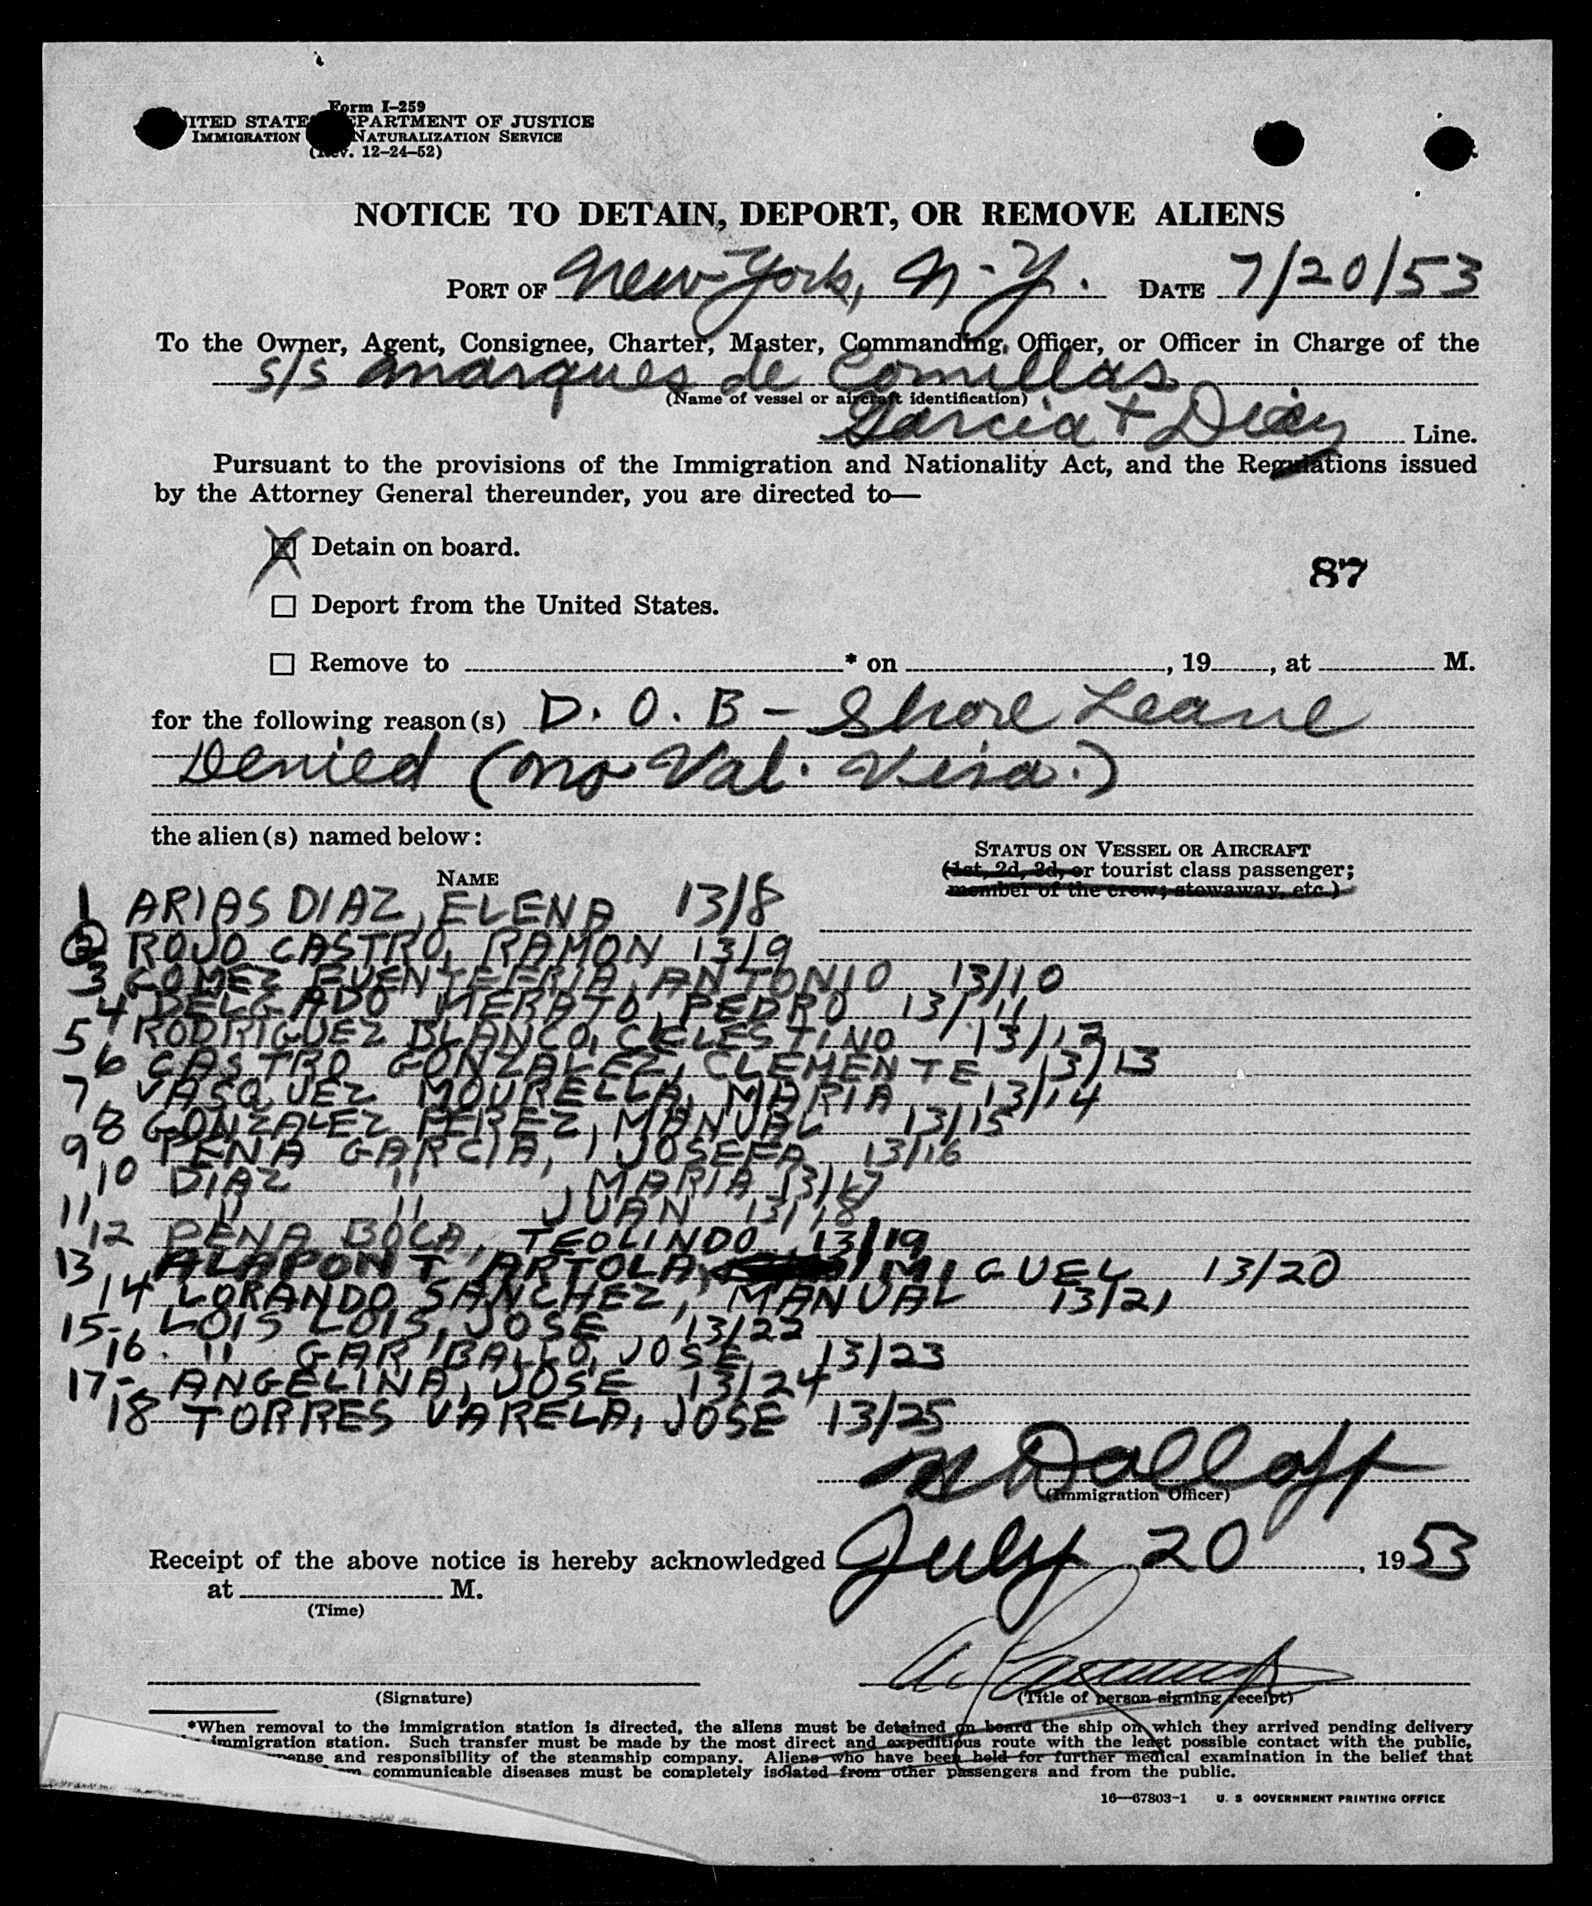 Form I-259
ITED STATE EPARTMENT OF JUSTICE
IMMIGRATION NATURALIZATION SERVICE
(Rev. 12-24-52)
NOTICE TO DETAIN, DEPORT, OR REMOVE ALIENS
PORT OF New York, N.Y. DATE 7/20/53
To the Owner, Agent, Consignee, Charter, Master, Commanding Officer, or Officer in Charge of the
S/S Marques de Comillas
(Name of vessel or aircraft identification)
Garcia + Diaz Line.
Pursuant to the provisions of the Immigration and Nationality Act, and the Regulations issued
by the Attorney General thereunder, you are directed to—
Detain on board.
87
Deport from the United States.
Remove to * on , 19 , at M.
for the following reason(s) D.O.B - Shore Leave
Denied (no Val. Visa.)
the alien(s) named below:
STATUS ON VESSEL OR AIRCRAFT
(1st, 2d, 3d, or tourist class passenger;
member of the crew; stowaway, etc.)
NAME
1 ARIAS DIAZ, ELENA 13/8
2 ROJO CASTRO, RAMON 13/9
3 GOMEZ FUENTEFRIA, ANTONIO 13/10
4 DELGADO MERATO, PEDRO 13/11
5 RODRIGUEZ BLANCO, CELESTINO 13/12
6 CASTRO GONZALEZ, CLEMENTE 13/13
7 VASQUEZ MOURELLA, MARIA 13/14
8 GONZALEZ PEREZ, MANUAL 13/15
9 PENA GARCIA, JOSEFA 13/16
10 DIAZ " MARIA 13/17
11 " " JUAN 13/18
12 PENA BOCA, TEOLINDO 13/19
13 ALAPONT ARTOLA, MIGUEL 13/20
14 LORANDO SANCHEZ, MANUAL 13/21
15- LOIS LOIS, JOSE 13/22
16. " GARBALLO, JOSE 13/23
17- ANGELINA, JOSE 13/24
18 TORRES VARELA, JOSE 13/25
Dalloff
(Immigration Officer)
Receipt of the above notice is hereby acknowledged July 20, 1953
at M.
(Time)
(Signature)
(Title of person signing receipt)
*When removal to the immigration station is directed, the aliens must be detained on board the ship on which they arrived pending delivery
immigration station. Such transfer must be made by the most direct and expeditious route with the least possible contact with the public,
and responsibility of the steamship company. Aliens who have been held for further medical examination in the belief that
communicable diseases must be completely isolated from other passengers and from the public.
16—67803-1 U. S. GOVERNMENT PRINTING OFFICE